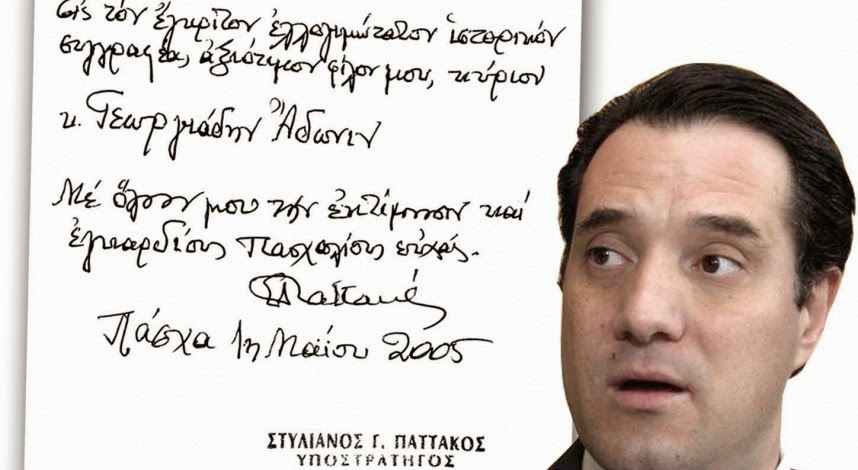 Εἰς τόν ἔγκριτον, ἐλλογιμώτατον ἱστορικόν
συγγραφέα, ἀξιότιμον φίλον μου, κύριον
κ. Γεωργιάδην Ἄδωνιν
Μέ ὅλην μου τήν ἐκτίμησιν καί
ἐγκαρδίους πασχαλίους εὐχάς.
Παττακός
Πάσχα 1η Μαΐου 2005
ΣΤΥΛΙΑΝΟΣ Γ. ΠΑΤΤΑΚΟΣ
ΥΠΟΣΤΡΑΤΗΓΟΣ